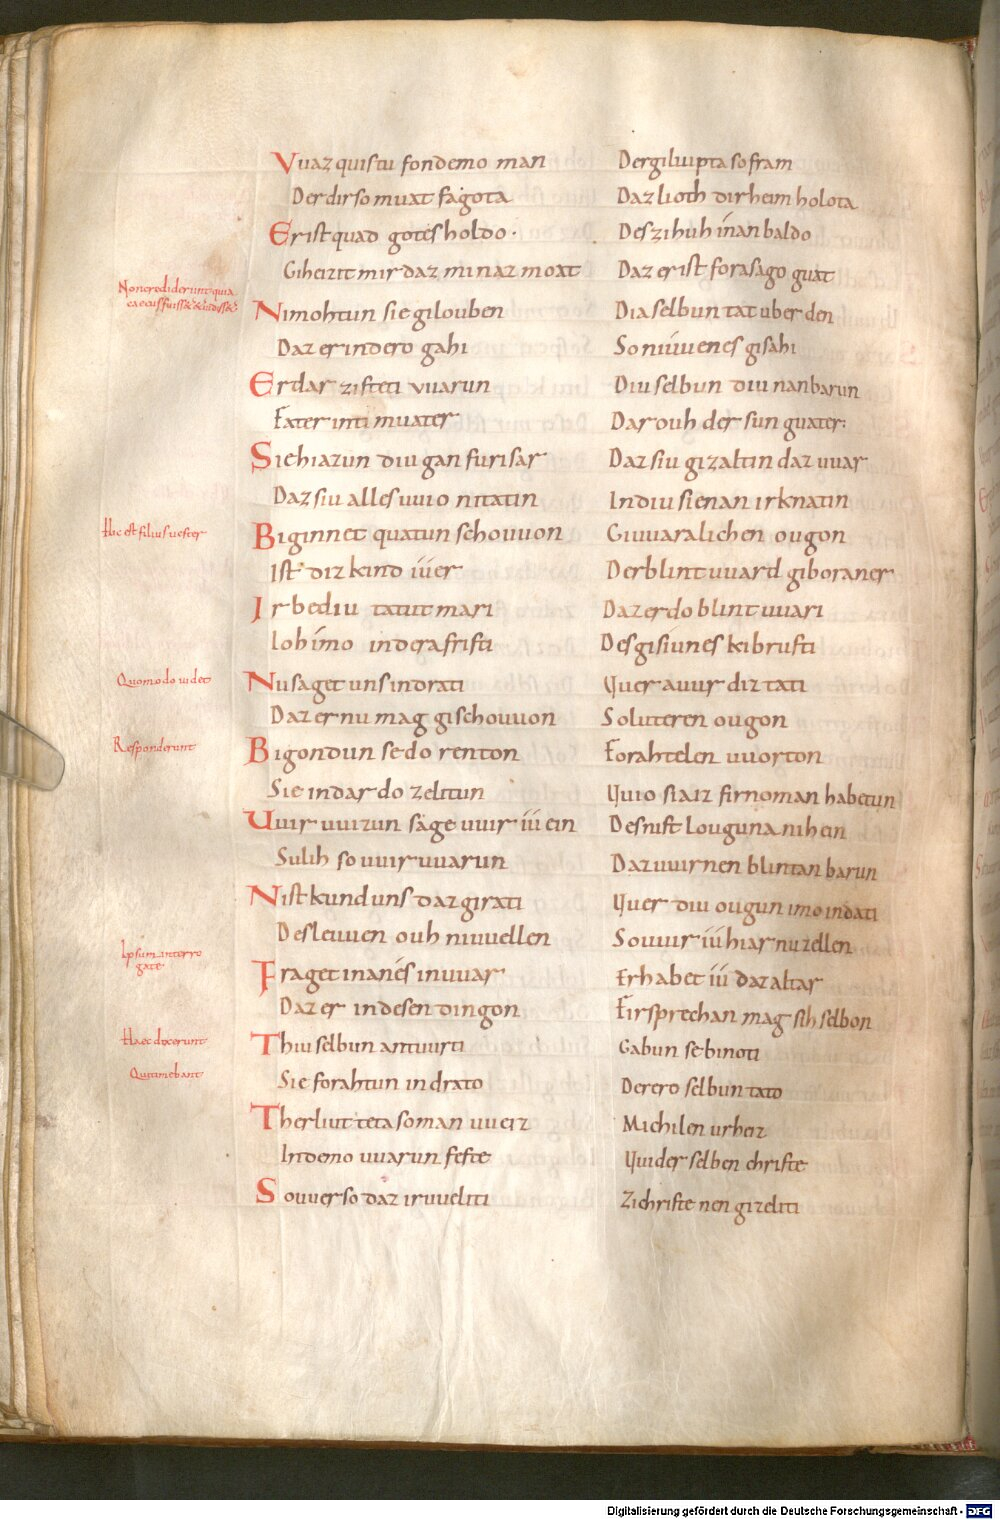 Vuaz quistu fondemo man Dergiluuptaso fram
Der dir so muat fagota Daz lioth dir heim holota
Er ist quad gotes holdo· Des zihuh inan baldo
Giheizit mir daz minaz moat Daz er ist forasago guat
Non crediderunt quia
Nimohtun sie gilouben Dia selbun tat uber den
Daz er indero gahi So niuuenes gisahi
Er dar zisteti vuarun Diu selbun diu nan barun
Fater inti muater Dar ouh der sun guater:
Sie hiazun diu gan furi sar Daz siu gizaltin daz uuar
Daz siu alles uuio nitatin Indiu sie nan irknatin
Hic est filius uester
Biginnet quatun schouuon Giuuaralichen ougon
Ist diz kind iuer Der blint uuard giboraner
Ir bediu tatut mari Daz er do blint uuari
Ioh imo indera fristi Des gisiunes kibrusti
Quomodo uidet
Nu saget uns indrati Uuer auur diz tati
Daz er nu mag gischouuon So luteren ougon
Responderunt
Bigondun se do renton Forahtelen uuorton
Sie indar do zelitun Uuio siaiz firnoman habetun
Uuir uuizun sage uuir iu ein Des nist louguna nihein
Sulih so uuir uuarun Daz uuir nen blintan barun
Nist kund uns daz girati Uuer diu ougun imo indati
Des leuuen ouh niuuellen So uuir iu hiar nu zellen
Ipsum interro
gate
Fraget inan es inuuar Er habet iu daz altar
Daz er indesen dingon Firsprechan mag sih selbon
Haec dixerunt
Thiu selbun antuurti Gabun se binoti
Qui timebant
Sie forahtun in drato Derero selbun tato
Ther liut teta so man uueiz Michilen urheiz
In demo uuarun feste Uuider selben christe
So uuer so daz iruueliti Zi christe nen gizeliti
Digitalisierung gefördert durch die Deutsche Forschungsgemeinschaft - DFG